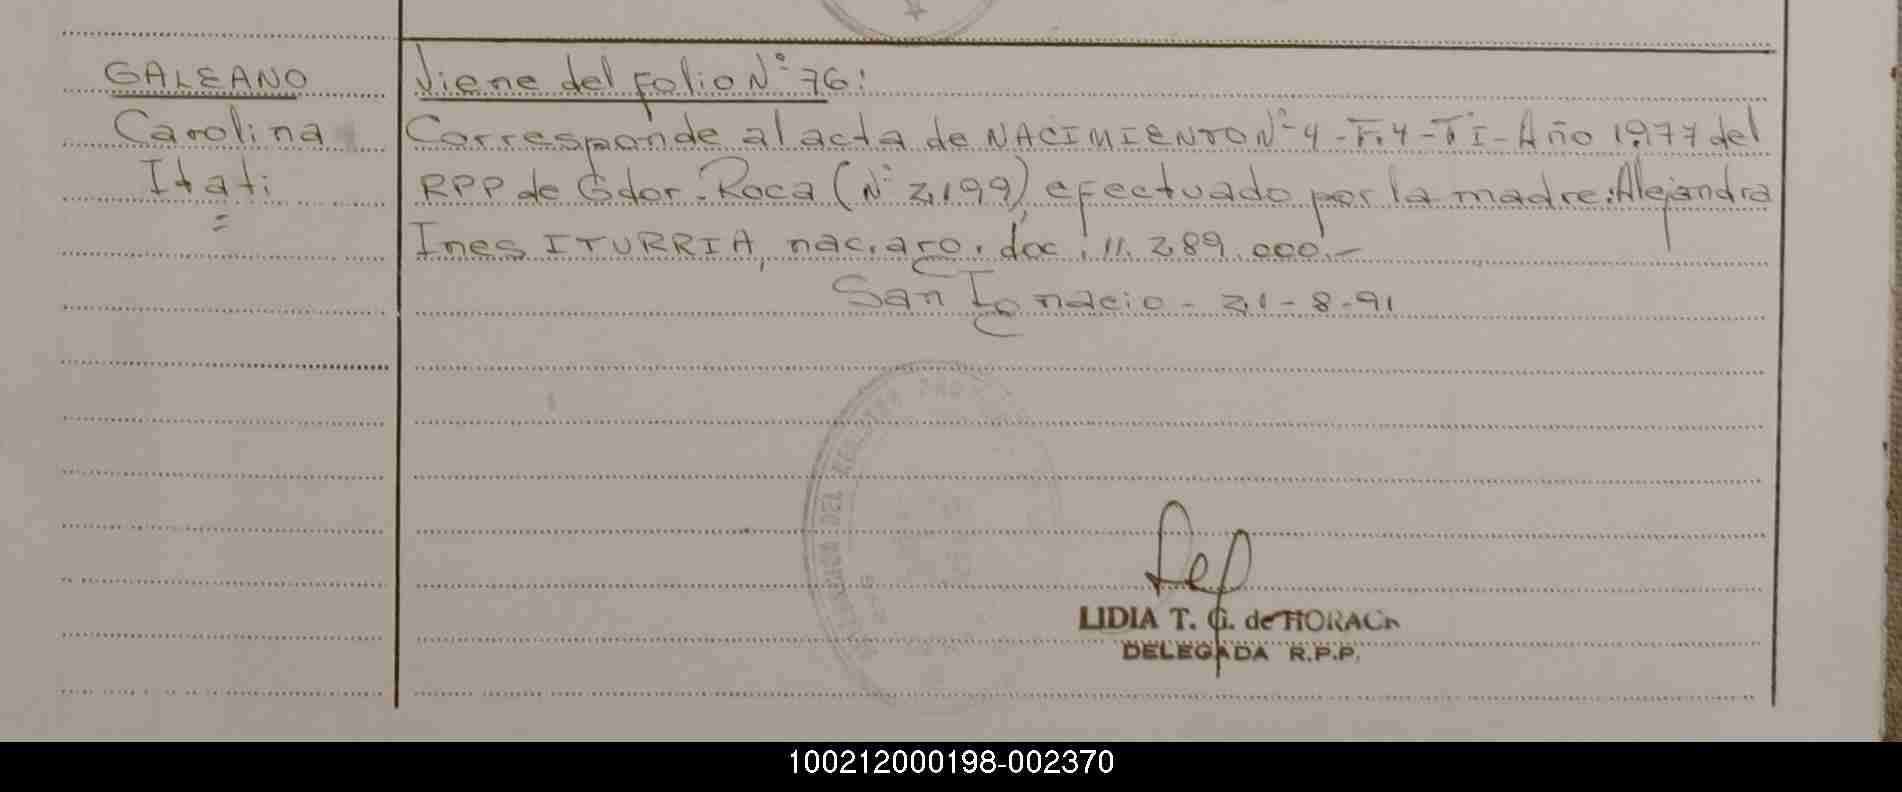 GALEANO
Carolina
Itati
=
Viene del folio N° 76:
Corresponde al acta de NACIMIENTO N° 4 - F. 4 - T I - Año 1.977 del
RPP de Gdor. Roca (N° 2199), efectuado por la madre: Alejandra
Ines ITURRIA, nac. arg. doc. 11.289.000.-
San Ignacio - 21 - 8 - 91
DEL
LIDIA T. G. de HORAC
DELEGADA R.P.P.
100212000198-002370